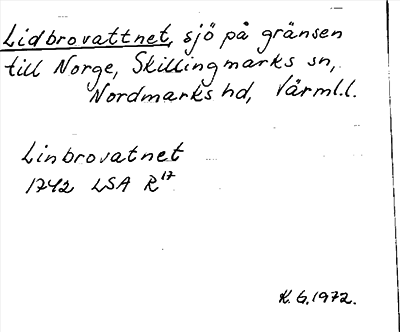 Lidbrovattnet, sjö på gränsen
till Norge, Skillingmarks sn,
Nordmarks hd, Värml.l.
Linbrovatnet
1742 LSA R17
K.G.1972.